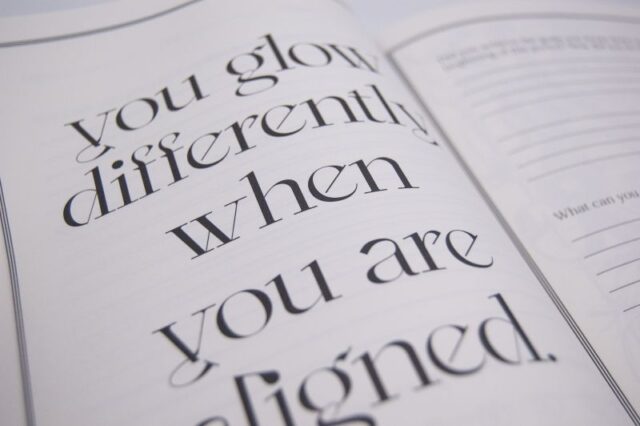 you glow
differently
when
you are
aligned.
What can you